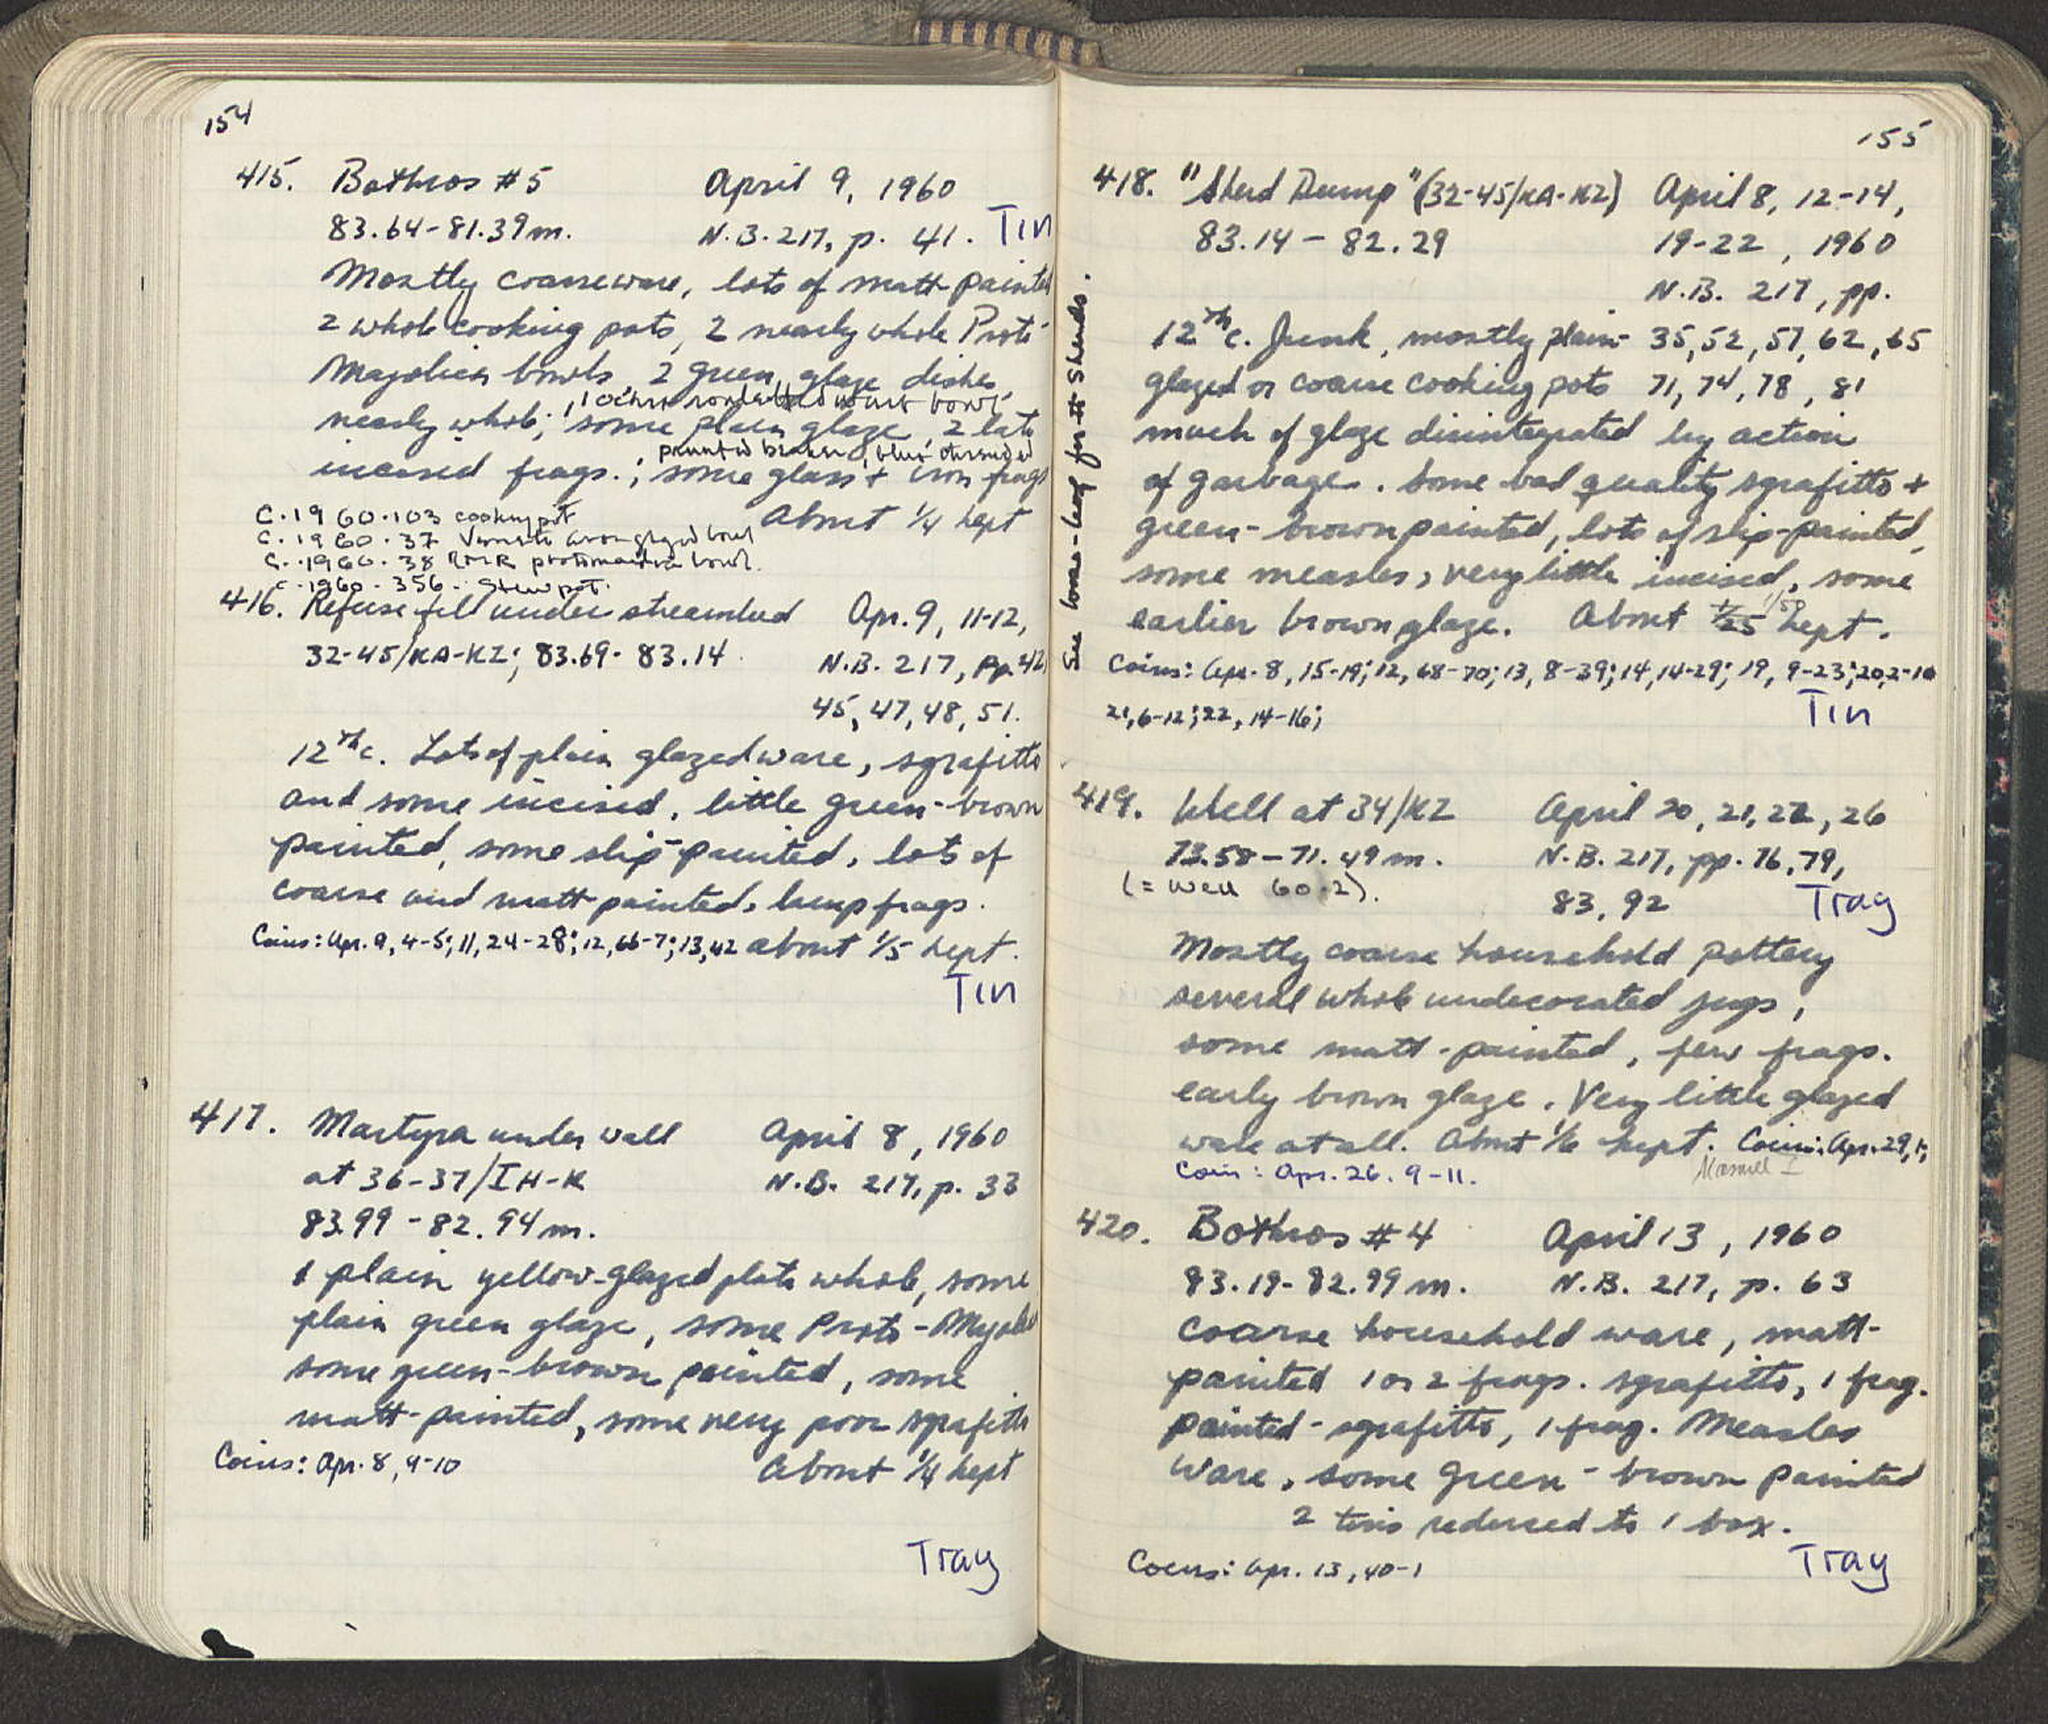 154
415. Bothros #5 April 9, 1960
83.64-81.39m. N.B. 217, p. 41. Tin
Mostly coarseware, lots of matt-painted
2 whole cooking pots, 2 nearly whole Proto-
Majolica bowls, 2 green glaze dishes,
nearly whole; some plain glaze, 2 late
incised frags.; some glass + iron frags
About 1/4 kept
C.1960.103 cooking pot
C.1960.37 bowl
C.1960.38 RMR protomaiolica bowl.
C.1960.356 Stewpot.
416. Refuse fill under streambed Apr. 9, 11-12,
32-45/KA-KZ; 83.69-83.14 N.B. 217, pp. 42,
45, 47, 48, 51.
12th c. Lots of plain glazed ware, sgrafitto
and some incised, little green-brown
painted, some slip-painted, lots of
coarse and matt painted, lamp frags.
Coins: Apr. 9, 4-5; 11, 24-28; 12, 66-7; 13, 42 about 1/5 kept.
Tin
417. Martyra under wall April 8, 1960
at 36-37/IH-K N.B. 217, p. 33
83.99-82.94m.
1 plain yellow-glazed plate whole, some
plain green glaze, some Proto-Majolica
some green-brown painted, some
matt-painted, some very poor sgrafitto
Coins: Apr. 8, 4-10 About 1/4 kept
Tray
155
418. "Sherd Dump" (32-45/KA-KZ) April 8, 12-14,
83.14-82.29 19-22, 1960
N.B. 217, pp.
12th c. Junk, mostly plain- 35, 52, 57, 62, 65
glazed or coarse cooking pots 71, 74, 78, 81
much of glaze disintegrated by action
of garbage. Some bad quality sgrafitto +
green-brown painted, lots of slip-painted,
some measles, very little incised, some
earlier brown glaze. About 1/25 1/50 kept.
Coins: Apr. 8, 15-19; 12, 68-70; 13, 8-39; 14, 14-29; 19, 9-23; 20, 2-10
21, 6-12; 22, 14-16;
Tin
See loose-leaf for # sherds.
419. Well at 34/KZ April 20, 21, 22, 26
73.58-71.49m. N.B. 217, pp. 76, 79,
(= Well 60-2). 83, 92 Tray
Mostly coarse household pottery
several whole undecorated jugs,
some matt-painted, few frags.
early brown glaze. Very little glazed
ware at all. About 1/6 kept. Coins: Apr. 29, 1;
Manuel I
Coin: Apr. 26. 9-11.
420. Bothros #4 April 13, 1960
83.19-82.99m. N.B. 217, p. 63
Coarse household ware, matt-
painted 1 or 2 frags. sgrafitto, 1 frag.
painted-sgrafitto, 1 frag. Measles
ware, some green-brown painted
2 tins reduced to 1 box.
Coins: Apr. 13, 40-1
Tray